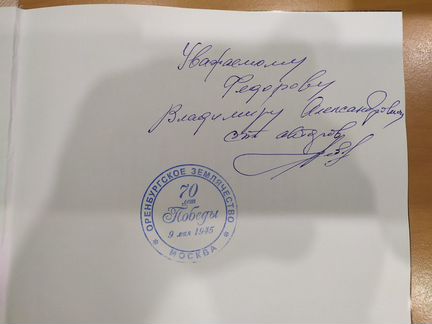 Уважаемому
Федорову
Владимиру Александровичу
от авторов
ОРЕНБУРГСКОЕ ЗЕМЛЯЧЕСТВО
70
лет
Победы
9 мая 1945
* МОСКВА *